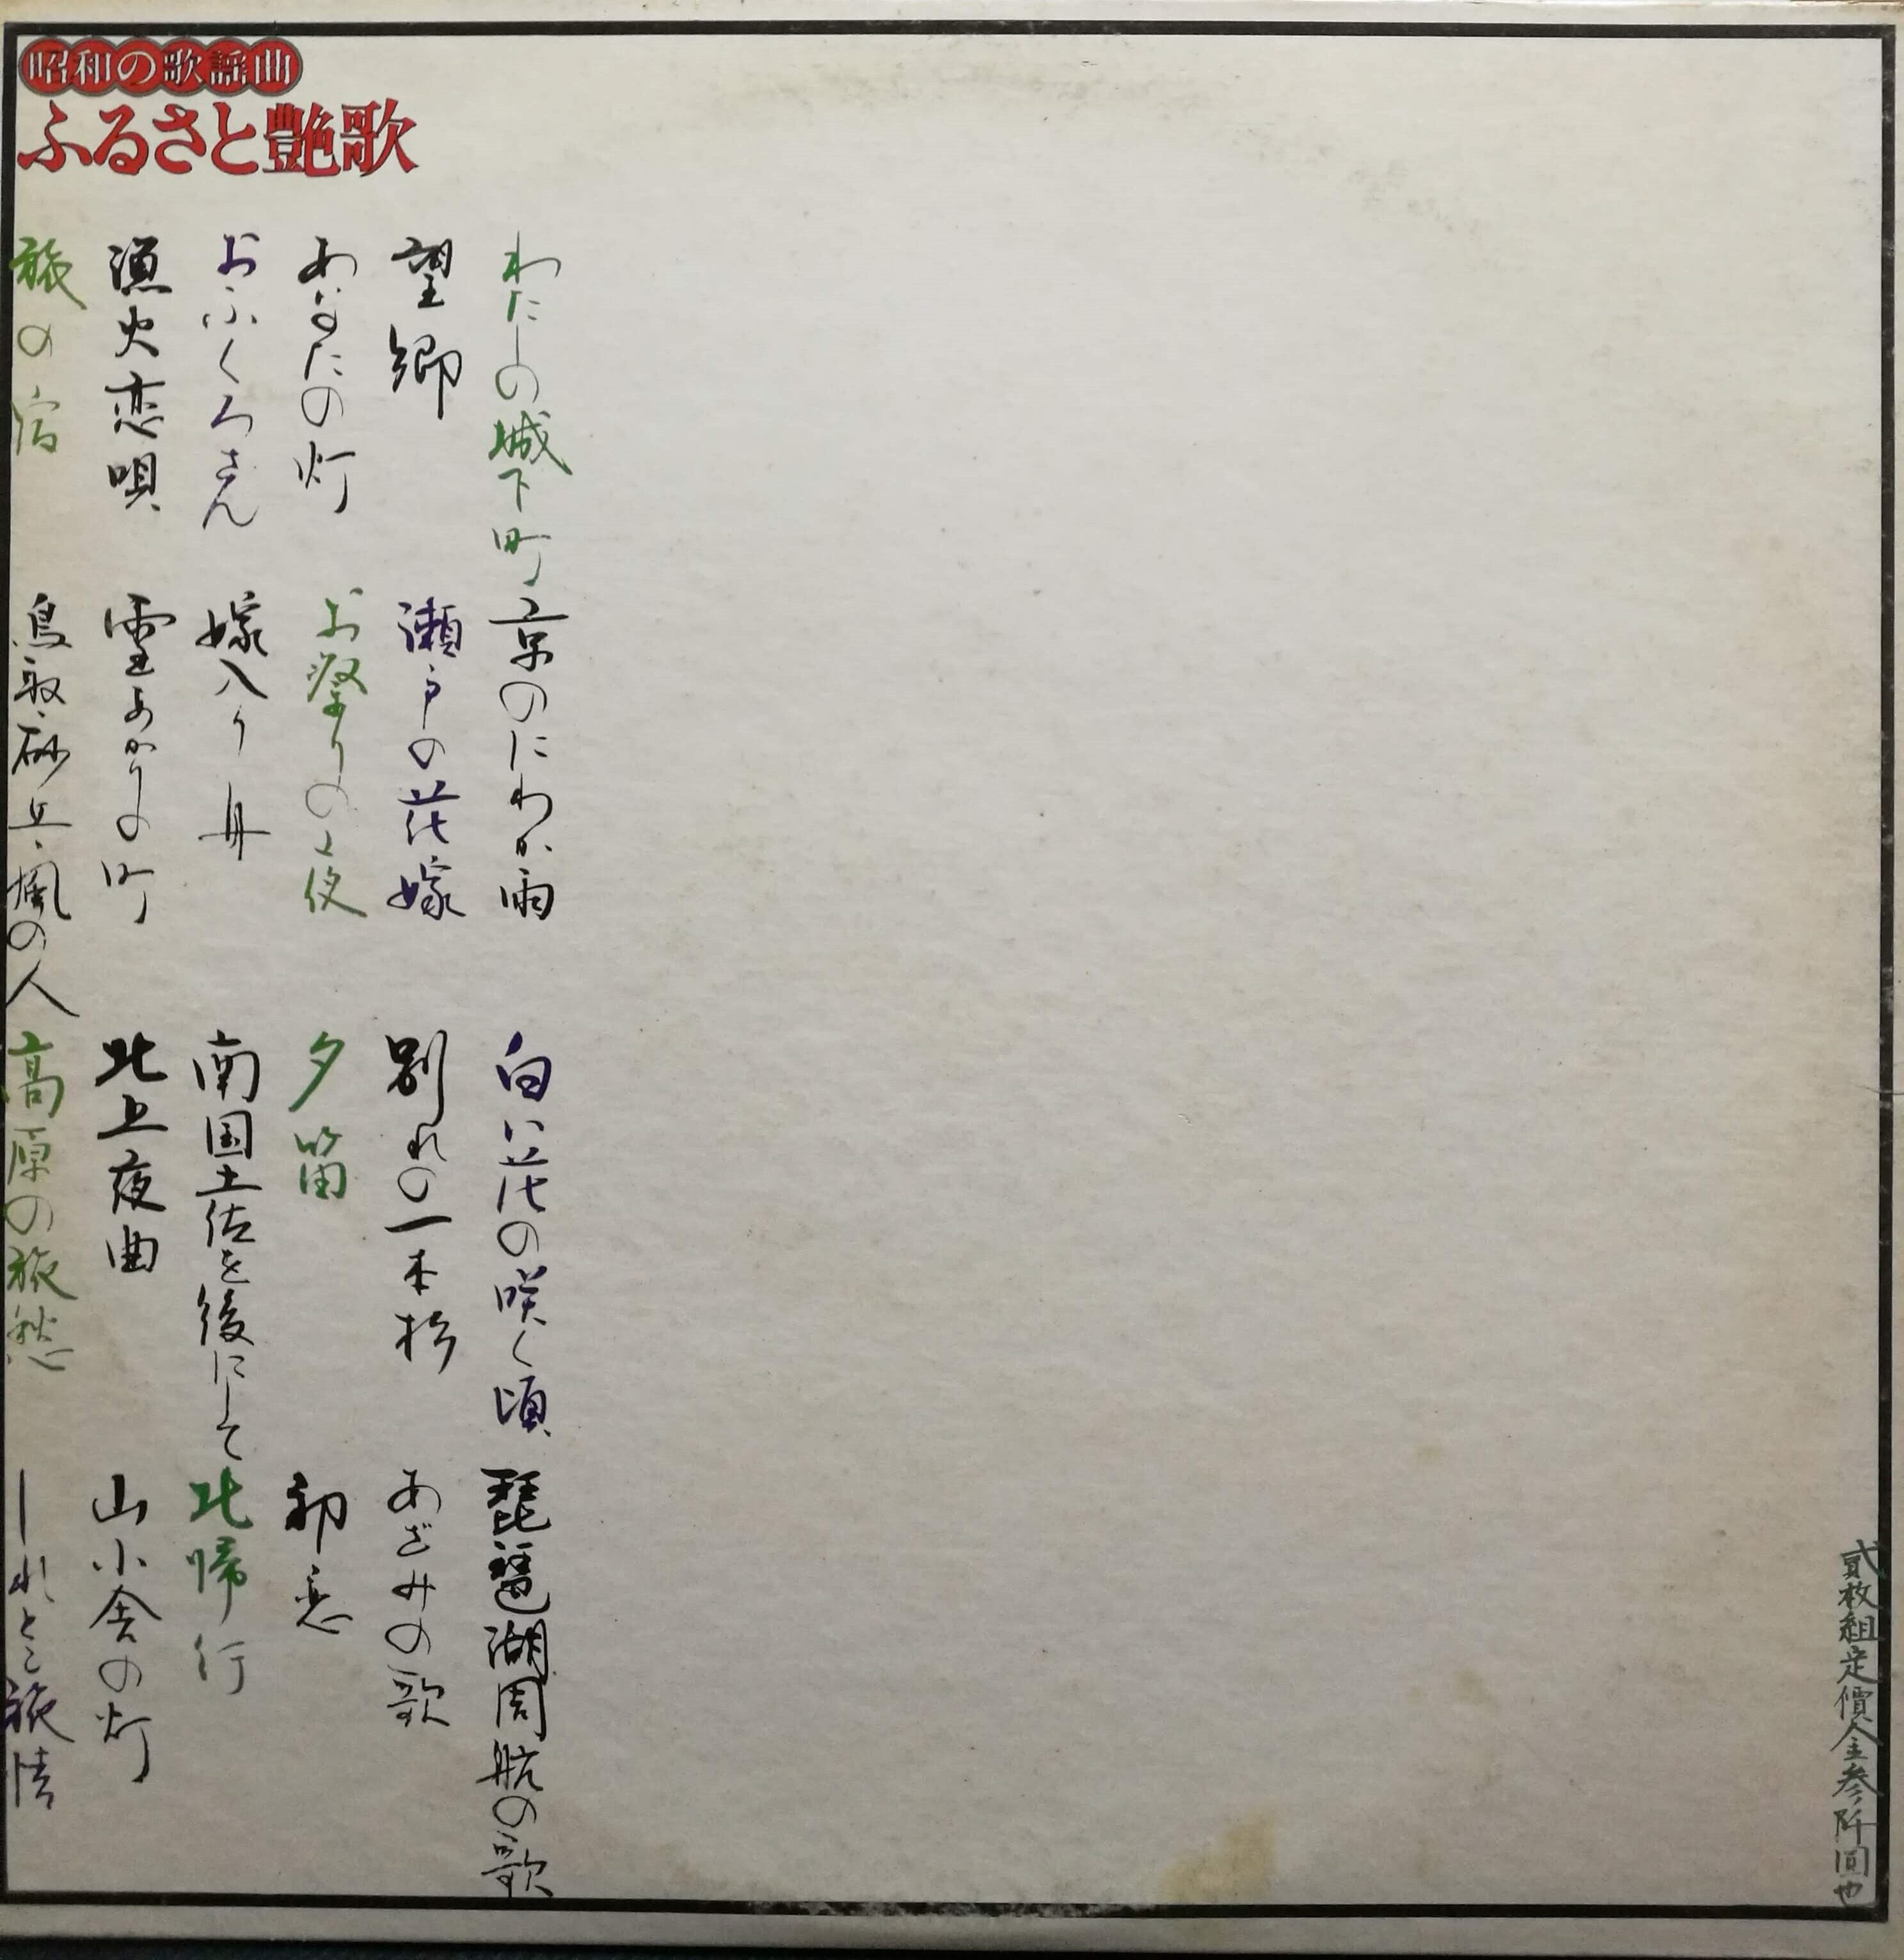 昭和の歌謡曲
ふるさと艶歌
わたしの城下町
望郷
あなたの灯
おふくろさん
漁火恋唄
旅の宿
京のにわか雨
瀬戸の花嫁
お祭りの夜
嫁入り舟
雪あかりの町
鳥取砂丘・風の人
白い花の咲く頃
別れの一本杉
夕笛
南国土佐を後にして
北上夜曲
高原の旅愁
琵琶湖周航の歌
あざみの歌
初恋
北帰行
山小舎の灯
しれとこ旅情
貳枚組定價金参阡圓也